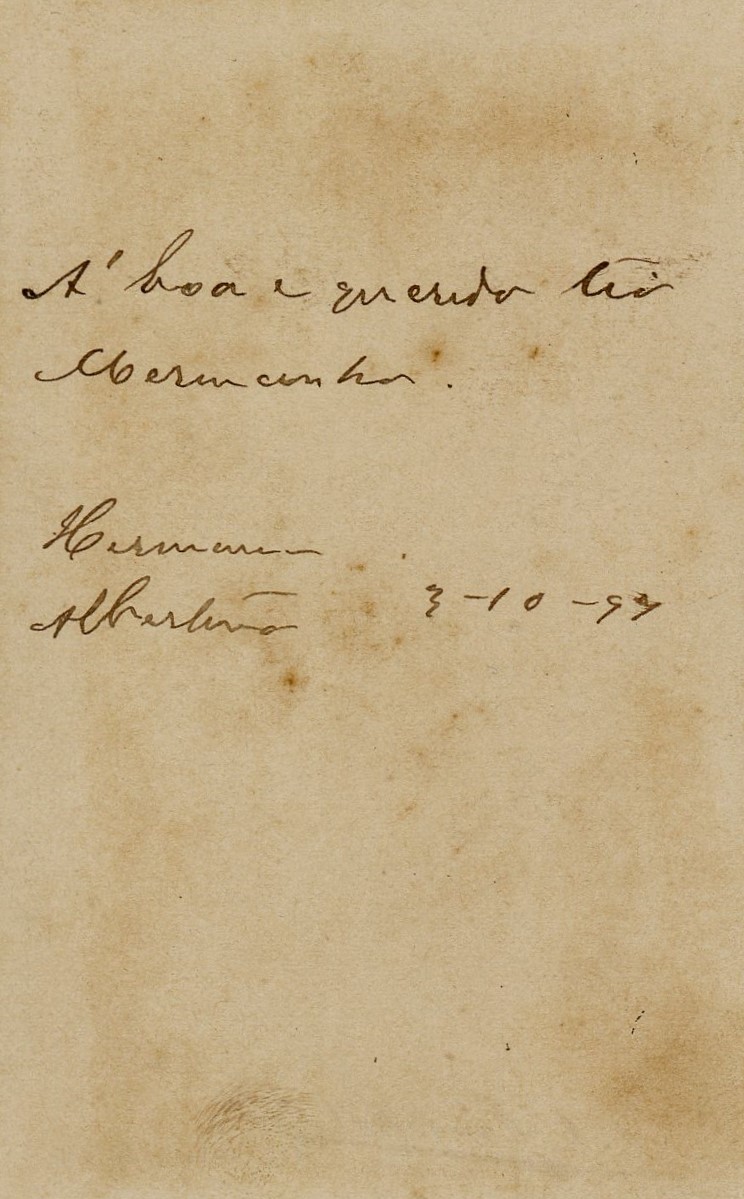 A' boa e querida tia
Mermanha.
Hermann
Albertina 3-10-97